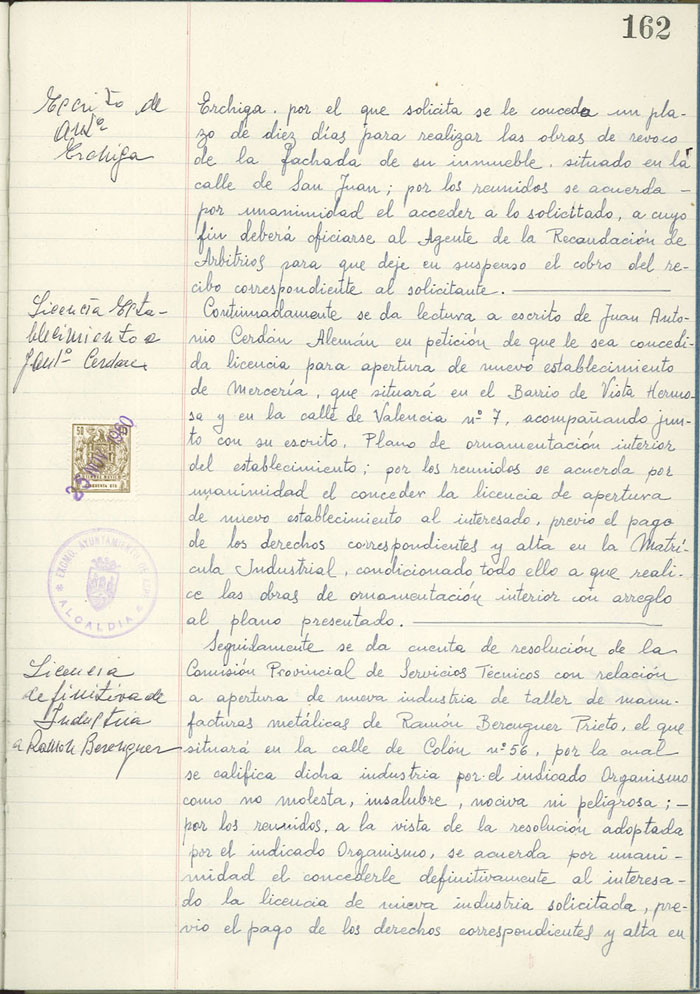 162
Escrito de
Antº
Erchiga
Erchiga. por el que solicita se le conceda un pla-
zo de diez días para realizar las obras de revoco
de la fachada de su inmueble. situado en la
calle de San Juan; por los reunidos se acuerda -
por unanimidad el acceder a lo solicitado, a cuyo
fin deberá oficiarse al Agente de la Recaudación de
Arbitrios para que deje en suspenso el cobro del re-
cibo correspondiente al solicitante.
Licencia Esta-
blecimiento a
J. Antº Cerdan
Continuadamente se da lectura a escrito de Juan Anto-
nio Cerdán Alemán en petición de que le sea concedi-
da licencia para apertura de nuevo establecimiento
de Mercería, que situará en el Barrio de Vista Hermo-
sa y en la calle de Valencia nº 7, acompañando jun-
to con su escrito. Plano de ornamentación interior
del establecimiento; por los reunidos se acuerda por
unanimidad el conceder la licencia de apertura
de nuevo establecimiento al interesado, previo el pago
de los derechos correspondientes y alta en la Matrí-
cula Industrial, condicionado todo ello a que reali-
ce las obras de ornamentación interior con arreglo
al plano presentado.
50
25 NOV. 1960
EXCMO. AYUNTAMIENTO DE
* ALCALDIA *
Licencia
definitiva de
Industria
a Ramón Berenguer
Seguidamente se da cuenta de resolución de la
Comisión Provincial de Servicios Técnicos con relación
a apertura de nueva industria de taller de manu-
facturas metálicas de Ramón Berenguer Prieto, el que
situará en la calle de Colón nº 56, por la cual
se califica dicha industria por el indicado Organismo
como no molesta, insalubre, nociva ni peligrosa; -
por los reunidos, a la vista de la resolución adoptada
por el indicado Organismo, se acuerda por unani-
midad el concederle definitivamente al interesa-
do la licencia de nueva industria solicitada, pre-
vio el pago de los derechos correspondientes y alta en